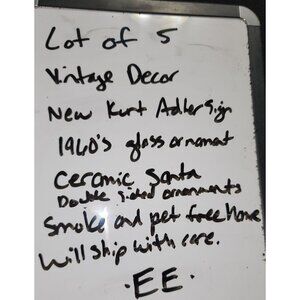 Lot of 5
Vintage Decor
New Kurt Adler Sign
1960's glass ornament
Ceramic Santa
Double sided ornaments
Smoke and pet free Home
Will ship with care.
·EE·